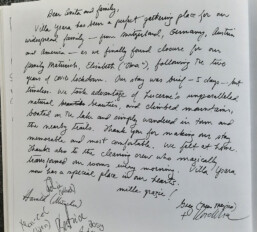 Dear and family,
Villa Ypara has been a perfect gathering place for our
widespread family — from Switzerland, Germany, Austria
and America — as we finally found closure for our
family matriarch, Elisabeth ("Oma"), following the two
years of covid lockdown. Our stay was brief - 5 days - but
timeless. We took advantage of Lucerne's unparalleled
natural beauties and climbed mountains,
boated on the lake and simply wandered in town and
the nearby trails. Thank you for making our stay
memorable and most comfortable. We felt at home.
Thanks also to the cleaning crew who magically
transformed our rooms every morning. Villa Ypara
now has a special place in our hearts.
mille grazie!